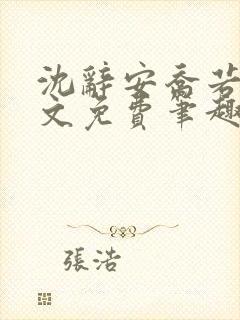 沈辭安喬若
文免費筆趣
張浩